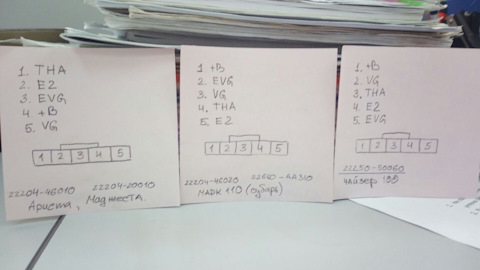 1. THA
2. E2
3. EVG
4 +B
5. VG
1 2 3 4 5
22204-46010 22204-20010
Ариста, Маджеста.
1 +B
2. EVG
3. VG
4. THA
5. E2
1 2 3 4 5
22204-46020 22680-AA310
МАРК 110 (субару)
1. +B
2. VG
3. THA
4. E2
5. EVG
1 2 3 4 5
22250-50060